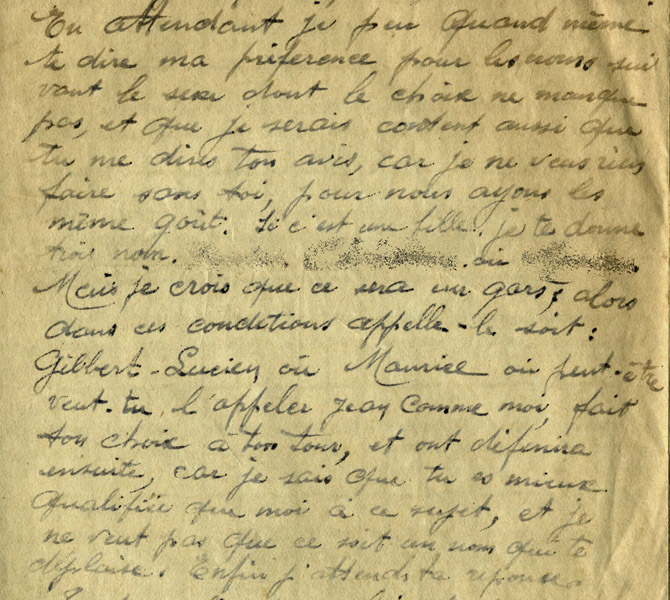 En attendant je peu quand même
te dire ma préférence pour les noms sui
vant le sexe dont le choix ne manque
pas, et que je serais content aussi que
tu me dises ton avis, car je ne veus rien
faire sans toi, pour nous ayons les
même goût. Si c'est une fille, je te donne
trois nom. ou
Mais je crois que ce sera un gars, alors
dans ces conditions appelle-le soit:
Gilbert-Lucien ou Maurice ou peut-être
veut-tu l'appeler Jean comme moi, fait
ton choix à ton tour, et ont définira
ensuite, car je sais que tu es mieux
qualifiée que moi à ce sujet, et je
ne veut pas que ce soit un nom qui te
déplaise. Enfin j'attends ta réponse.